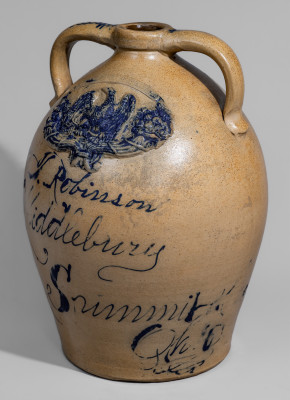 Robinson
Middlebury
Summit
Ohio